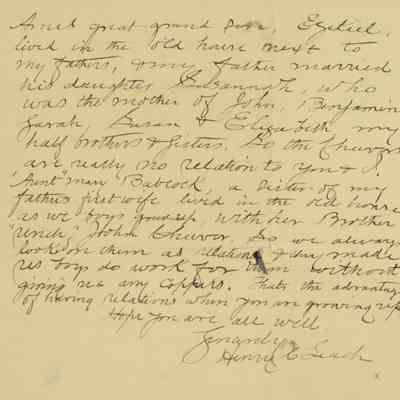 great grand sire, Ezekiel,
lived in the old house next to
my fathers, & my father married
his daughter Susannah, who
was the mother of John, Benjamin
Sarah, Susan & Elizabeth, my
half brothers & sisters. So the Cheevers
are really no relation to you & I.
"Aunt" Babcock, a sister of my
fathers first wife lived in the old house
as we boys grew up, with her Brother
"Uncle" John Cheever, so we always
look on them as relations & they made
us boys do work for them without
giving us any Coppers. Thats the advantage
of having relations when you are growing up
Hope you are all well
Leach